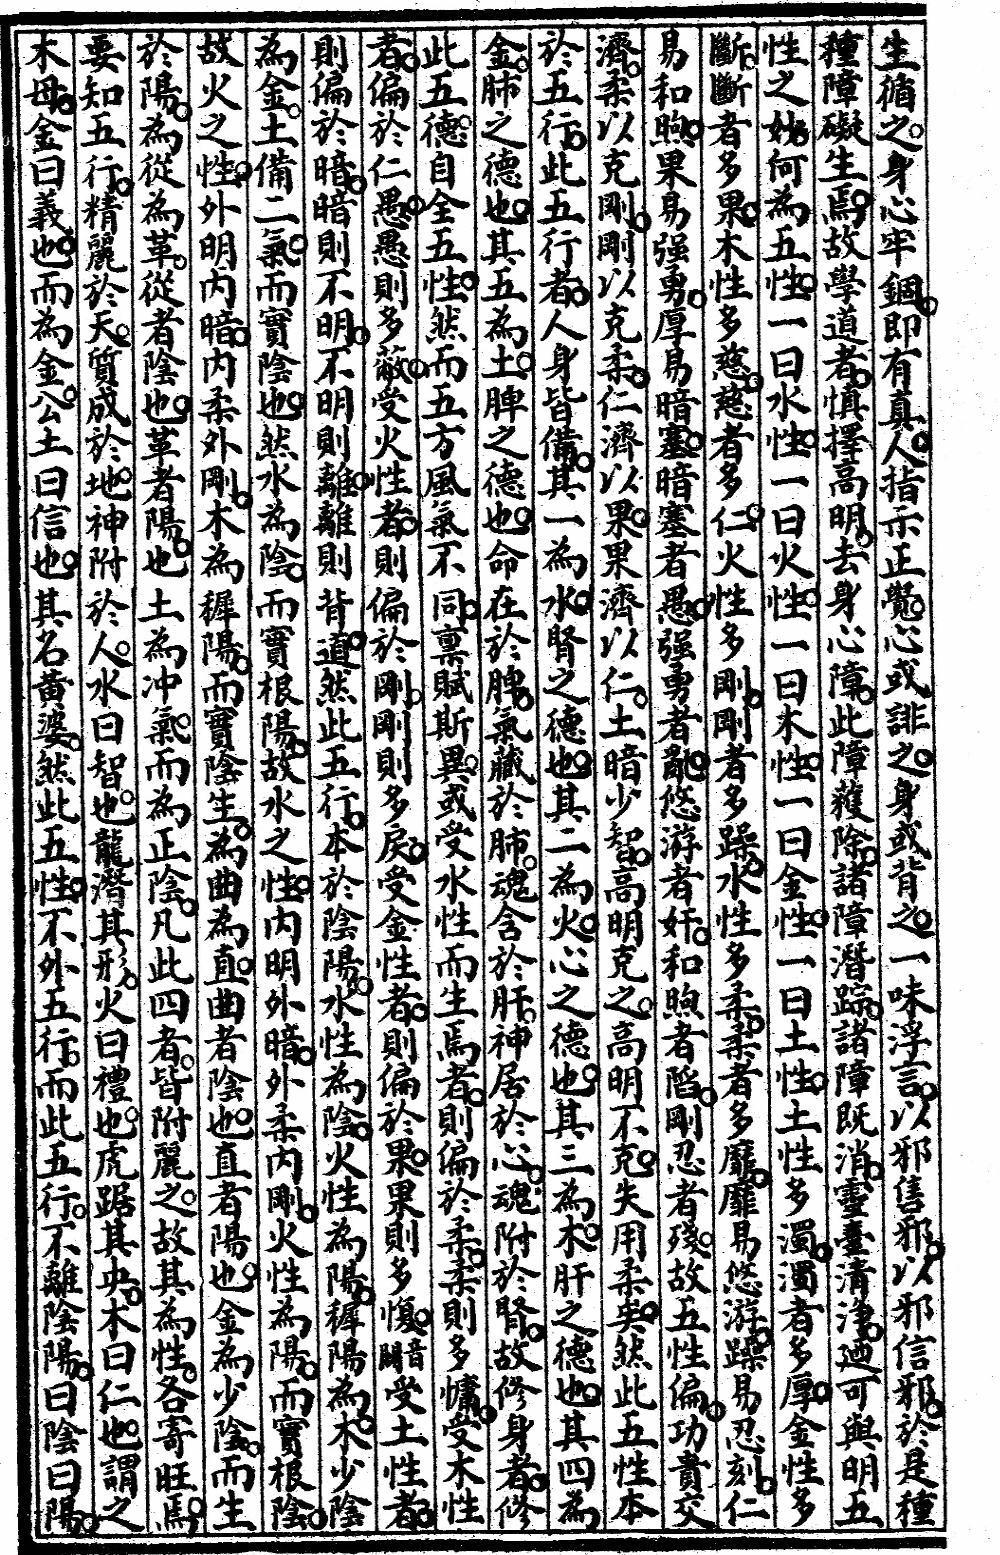 生循之身心牢錮即有真人指示正覺心或誹之身或背之一味浮言以邪售邪以邪信邪於是種
種障礙生焉故學道者慎擇高明去身心障此障蕿除諸障潛踪諸障既消靈臺清淨廼可與明五
性之妙何為五性一曰水性一曰火性一曰木性一曰金性一曰土性土性多濁濁者多厚金性多
斷斷者多果木性多慈慈者多仁火性多剛剛者多躁水性多柔柔者多靡靡易悠游躁易忍刻仁
易和煦果易强勇厚易暗塞暗塞者愚强勇者亂悠游者奸和煦者陷剛忍者殘故五性偏功貴交
濟柔以克剛剛以克柔仁濟以果果濟以仁土暗少智高明克之高明不克失用柔矣然此五性本
於五行此五行者人身皆備其一為水腎之德也其二為火心之德也其三為木肝之德也其四為
金肺之德也其五為土脾之德也命在於脾氣藏於肺魂含於肝神居於心魂附於腎故修身者修
此五德自全五性然而五方風氣不同稟賦斯異或受水性而生焉者則偏於柔柔則多慵受木性
者偏於仁愚愚則多蔽受火性者則偏於剛剛則多戾受金性者則偏於果果則多愎闇受土性者
則偏於暗暗則不明不明則離離則背道然此五行本於陰陽水性為陰火性為陽穉陽為木少陰
為金土備二氣而實陰也然水為陰而實根陽故水之性內明外暗外柔內剛火性為陽而實根陰
故火之性外明內暗內柔外剛木為穉陽而實陰生為曲為直曲者陰也直者陽也金為少陰而生
於陽為從為革從者陰也革者陽也土為冲氣而為正陰凡此四者皆附麗之故其為性各寄旺焉
要知五行精麗於天質成於地神附於人水曰智也龍潛其形火曰禮也虎踞其央木曰仁也謂之
木母金曰義也而為金公土曰信也其名黃婆然此五性不外五行而此五行不離陰陽曰陰曰陽